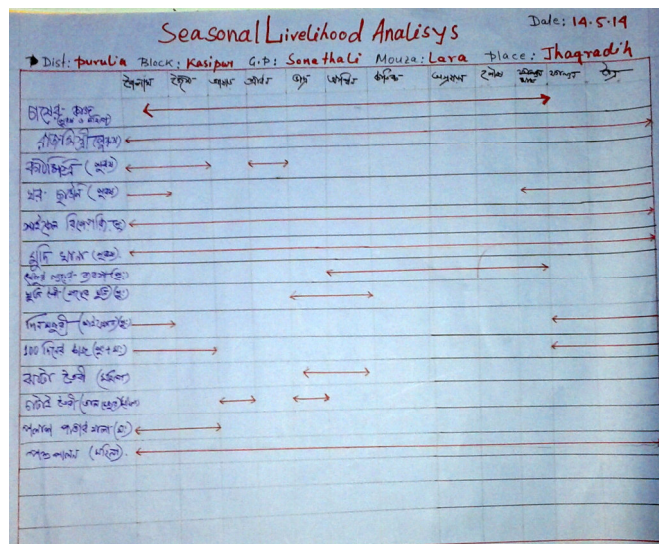 Seasonal Livelihood Analisys
Date: 14.5.14
Dist: Purulia Block: Kasipur G.P: Sonathali Mouza: Lara Place: Thaqradih
বৈশাখ জৈষ্ঠ আষাঢ় শ্রাবণ ভাদ্র আশ্বিন কার্তিক অগ্রহায়ণ পৌষ মাঘ ফাল্গুন চৈত্র
চাষের কাজ
(পুরুষ ও মহিলা)
রাজমিস্ত্রী (পুরুষ)
কাঠমিস্ত্রি (পুরুষ)
ঘর ছাউনি (পুরুষ)
সাইকেল (পু)
মুদি খানা (পুরুষ)
দিনমজুরী (পু)
100 দিনের কাজ (পু+ম)
ঝাটা তৈরী (মহিলা)
চাটাই তৈরী
পলাশ পাতার থালা (ম)
পশুপালন (মহিলা)